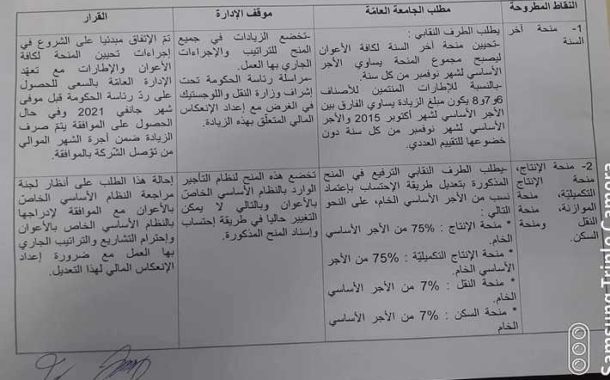 النقاط المطروحة
مطلب الجامعة العامّة
موقف الإدارة
القرار
1- منحة آخر
السنة
يطلب الطرف النقابي :
-تحيين منحة آخر السنة لكافة الأعوان
ليصبح مجموع المنحة يساوي الأجر
الأساسي لشهر نوفمبر من كل سنة.
-بالنسبة للإطارات المنتمين للأصناف
6و7و8 يكون مبلغ الزيادة يساوي الفارق بين
الأجر الأساسي لشهر أكتوبر 2015 والأجر
الأساسي لشهر نوفمبر من كل سنة دون
خضوعها للتقييم العددي.
-تخضع الزيادات في جميع
المنح للتراتيب والإجراءات
الجاري بها العمل.
-مراسلة رئاسة الحكومة تحت
إشراف وزارة النقل واللوجستيك
في الغرض مع إعداد الإنعكاس
المالي المتعلّق بهذه الزيادة.
تمّ الإتفاق مبدئيا على الشروع في
إجراءات تحيين المنحة لكافة
الأعوان والإطارات مع تعهّد
الإدارة العامّة بالسعي للحصول
على ردّ رئاسة الحكومة قبل موفى
شهر جانفي 2021 وفي حال
الحصول على الموافقة يتمّ صرف
الزيادة ضمن أجرة الشهر الموالي
من توصّل الشركة بالموافقة.
2- منحة الإنتاج،
منحة الإنتاج
التكميليّة، منحة
الموازنة، منحة
النقل ومنحة
السكن.
-يطلب الطرف النقابي الترفيع في المنح
المذكورة بتعديل طريقة الإحتساب بإعتماد
نسب من الأجر الأساسي الخام، على النحو
التالي :
* منحة الإنتاج : 75% من الأجر الأساسي
الخام.
* منحة الإنتاج التكميليّة : 75% من الأجر
الأساسي الخام.
* منحة النقل : 7% من الأجر الأساسي
الخام.
* منحة السكن : 7% من الأجر الأساسي
الخام
تخضع هذه المنح لنظام التأجير
الوارد بالنظام الأساسي الخاصّ
بالأعوان وبالتالي لا يمكن
التغيير حاليا في طريقة إحتساب
وإسناد المنح المذكورة.
إحالة هذا الطلب على أنظار لجنة
مراجعة النظام الأساسي الخاصّ
بالأعوان مع الموافقة لإدراجها
بالنظام الأساسي الخاص بالأعوان
وإحترام التشاريع والتراتيب الجاري
بها العمل مع ضرورة إعداد
الإنعكاس المالي لهذا التعديل.
Samsung Triple Camera